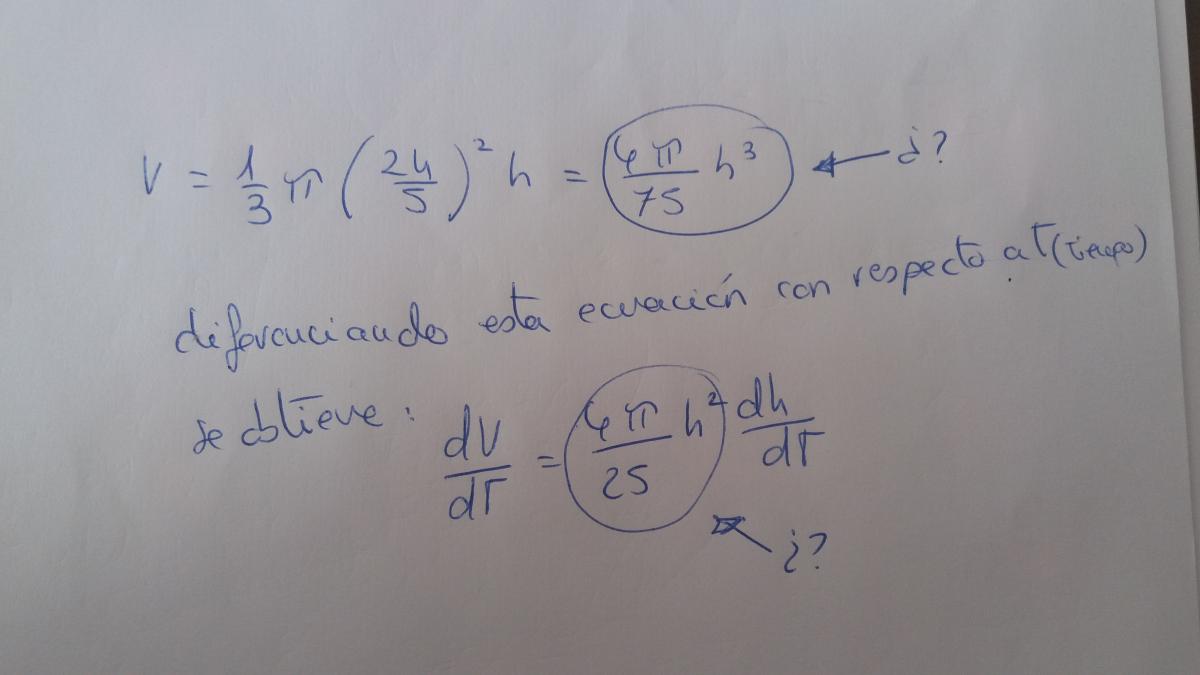 V = 1/3 π (2h/5)² h = 4π/75 h³ ← ¿?
diferenciando esta ecuación con respecto a T (tiempo)
se obtiene: dV/dT = 4π/25 h² dh/dT
¿?